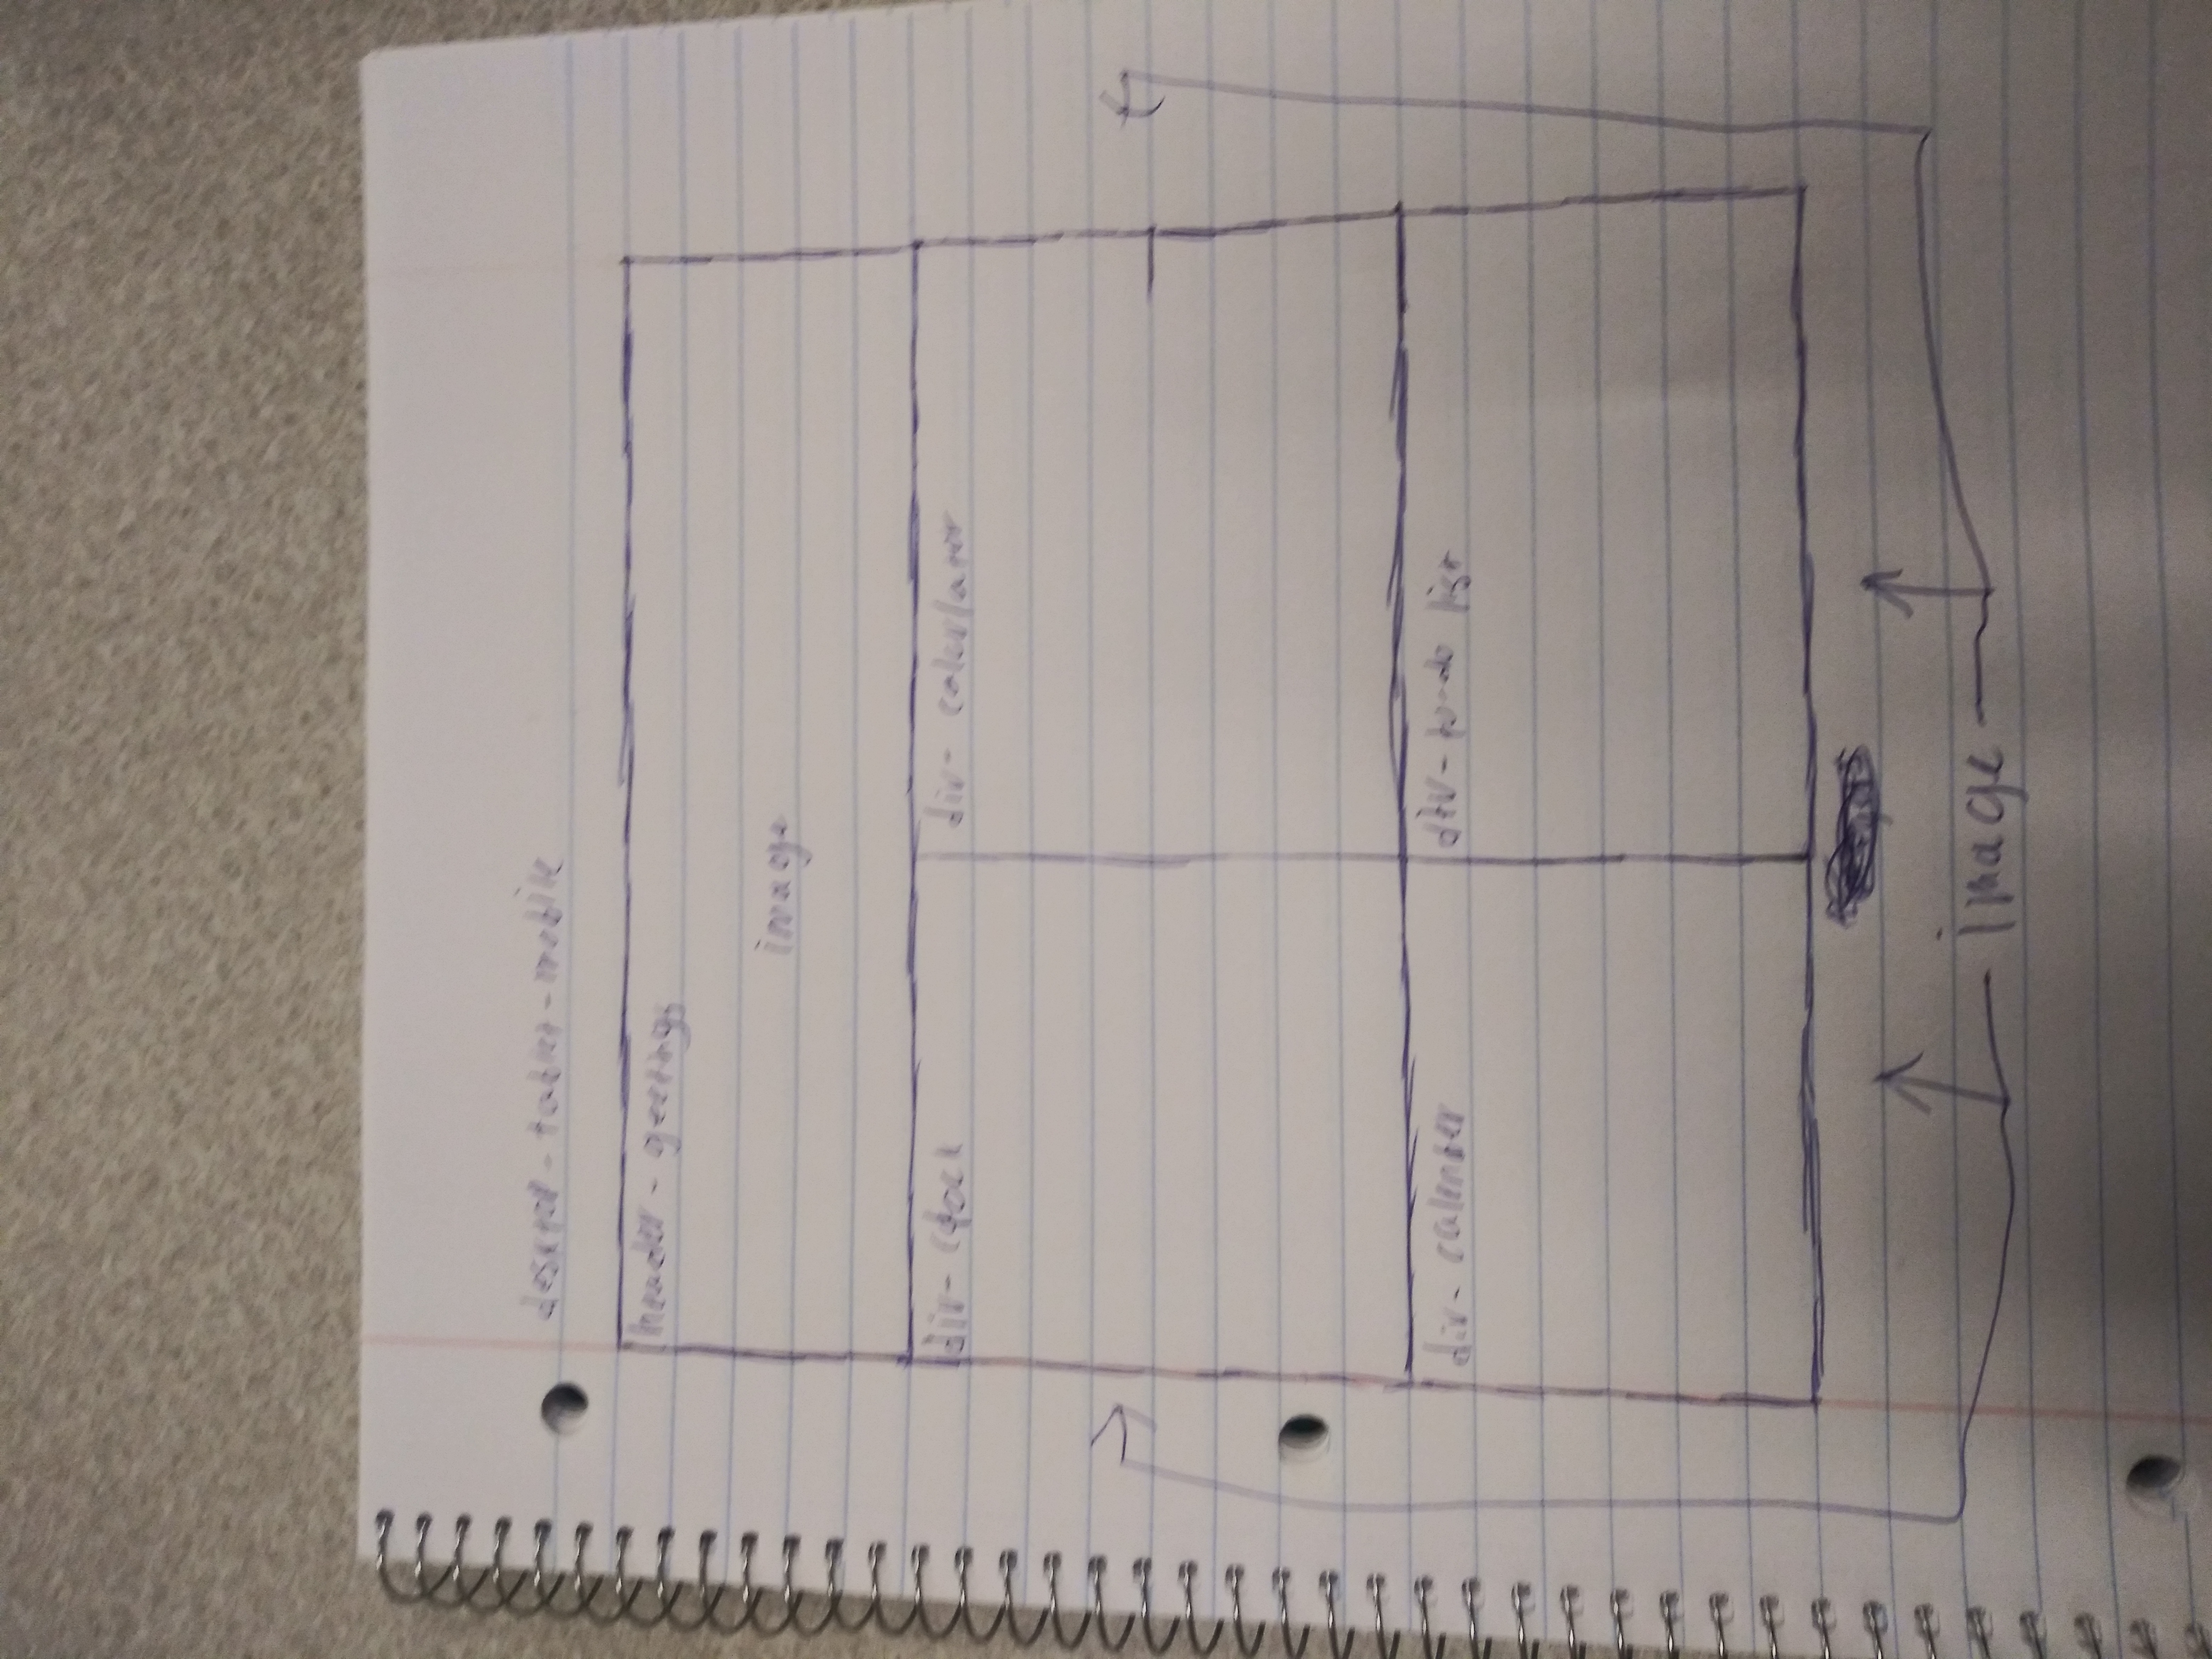 desktop - tablet - mobile
header - greetings
image
div - clock
div - calculator
div - calender
div - to-do list
image